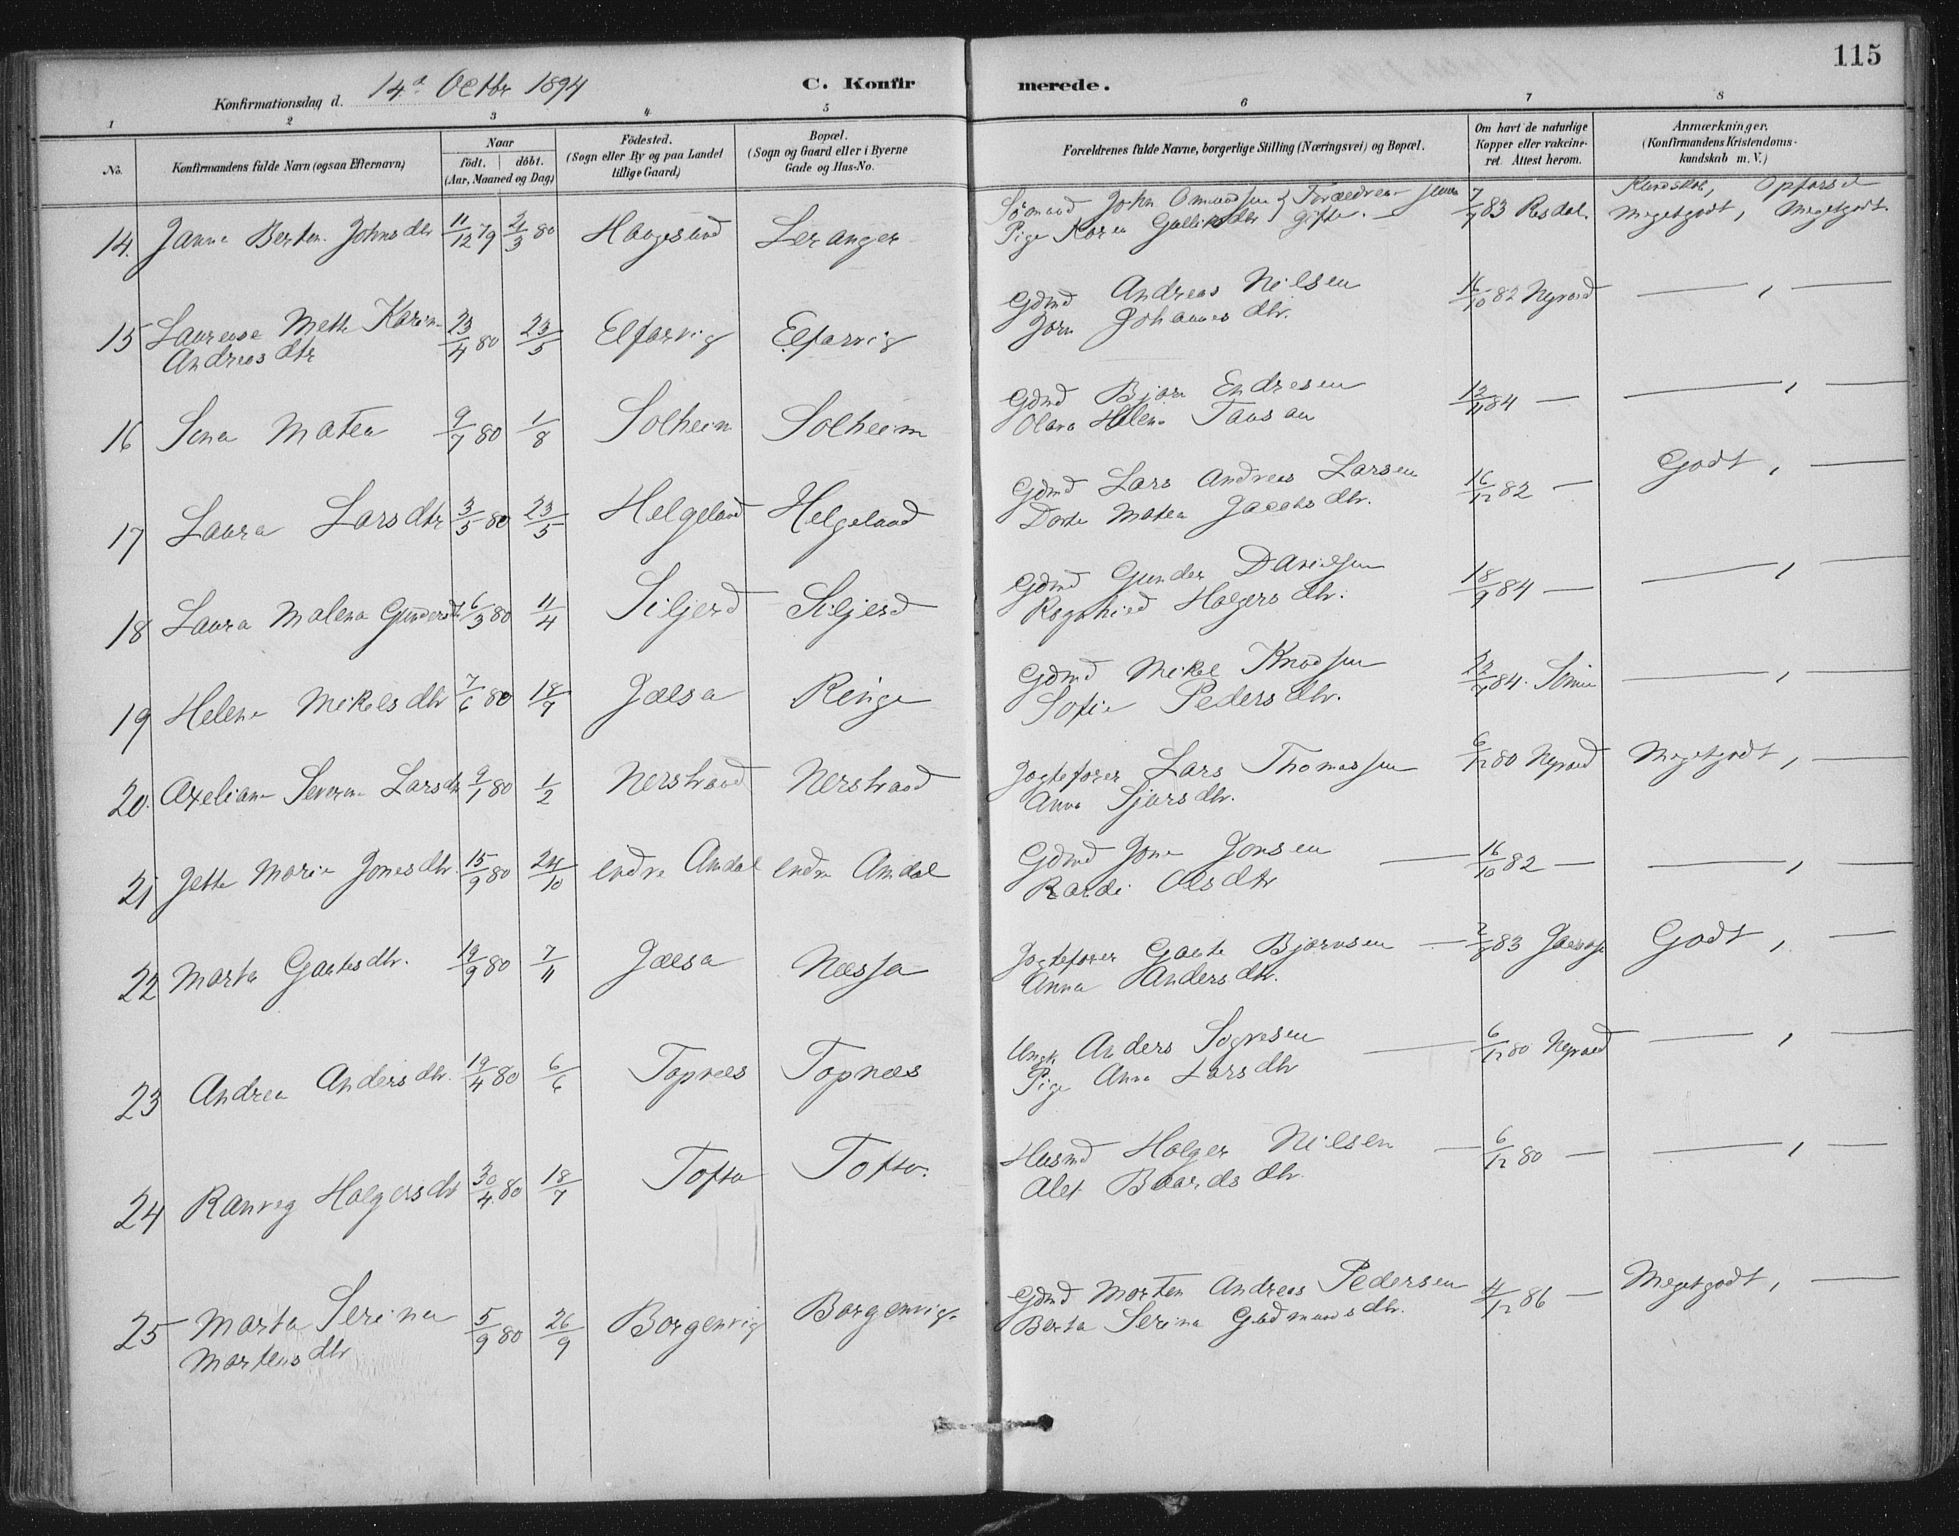 115
Konfirmationsdag d. 14de Octbr 1894 C. Konfirmerede.
1 2 3 4 5 6 7 8
No. Konfirmandens fulde Navn (ogsaa Efternavn) Naar født. døbt. (Aar, Maaned og Dag) Födested. (Sogn eller By og paa Landet tillige Gaard) Bopæl. (Sogn og Gaard eller i Byerne Gade og Hus-No. Forældrenes fulde Navne, borgerlige Stilling (Næringsvei) og Bopæl. Om havt de naturlige Kopper eller vakcineret. Attest herom. Anmærkninger. (Konfirmandens Kristendomskundskab m. V.)
14. Janna Johnsdtr 11/12 79 2/3 80 Haugesund Leranger Sömand John Omundsen Forældrene gifte. 7/7 83 Kundskab, Opförsel
Pige Karen Megetgodt, Megetgodt
15 Laurense Mette Karine 23/4 80 23/5 Elfarvig Elfarvig Gdmd Andreas Nilsen 16/10 82 — , —
Andreasdtr Johannesdtr.
16 Sena Matea 9/7 80 1/8 Solheim Solheim Gdmd Bjørn Endresen 84 — — , —
Olava Helene
17 Laura Larsdtr 3/5 80 23/5 Helgeland Helgeland Gdmd Lars Andreas Larsen 16/12 82 — Godt, —
Dorte Matea Jacobsdtr.
18 Laura Malena Gundersdtr 6/3 80 11/4 Siljerd Siljerd Gdmd Gunder Davidsen 18/9 84 — — , —
Holgersdtr.
19 Helene Mikelsdtr 7/6 80 18/7 Jælsa Ringe Gdmd Mikel Knudsen 84. — , —
Sofie Pedersdtr.
20. Axeliane Severine Larsdtr 9/1 80 1/2 Nerstrand Nerstrand Jagtefører Lars Thomassen 6/12 80 Megetgodt, —
Anna Sjursdtr.
21 Jette Marie Jonesdtr. 15/9 80 24/10 indre Amdal indre Amdal Gdmd Jone Jonsen — 16/10 82 — — , —
Olsdtr
22 Marta Gautesdtr. 19/9 80 7/11 Jælsa Næssa Jagtefører Gaute Bjørnsen — 2/8 83 Godt, —
Anna Andersdtr.
23 Andrea Andersdtr. 19/4 80 6/6 Topnæs Topnæs Ungk. Anders — 6/12 80 — , —
Pige Anna Larsdtr
24 Ranveg Holgersdtr 30/4 80 18/7 Tofta Tofta. Husmd Holger Nilsen — 6/12 80 — — , —
Alet Baardsdtr.
25 Marta Serina 5/9 80 26/9 Borgenvig Borgenvig. Gdmd Morten Andreas Pedersen 4/12 86 — Megetgodt, —
Mortensdtr Berta Serina Gudmundsdtr.